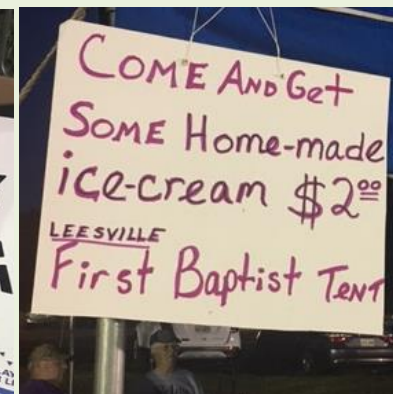 COME AND Get
SOME Home-made
ice-cream $2.00
LEESVILLE
First Baptist TENT